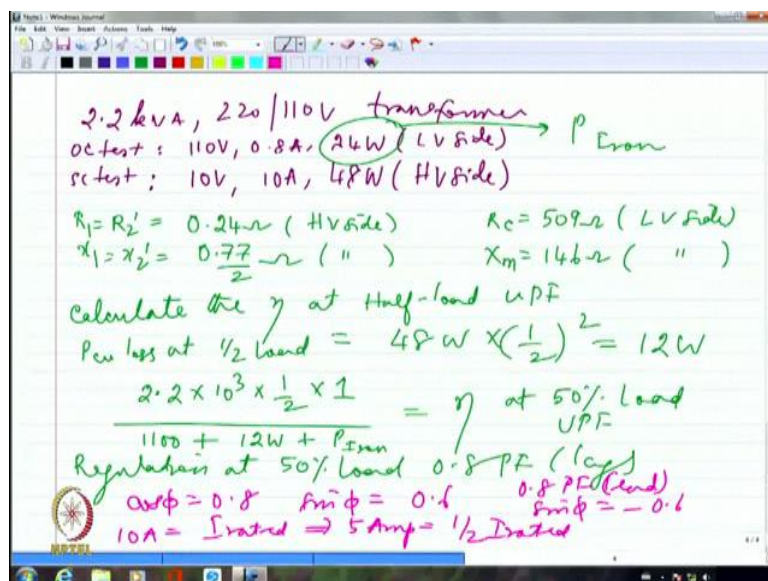 Note1 - Windows Journal
File Edit View Insert Actions Tools Help
100%
B I
2.2 kVA, 220/110V transformer
OC test : 110V, 0.8A, 24W (LV side) → P Iron
SC test : 10V, 10A, 48W (HV side)
R1 = R2' = 0.24 Ω (HV side) Rc = 509 Ω (LV side)
x1 = x2' = 0.77/2 Ω ( " ) Xm = 146 Ω ( " )
Calculate the η at Half-load UPF
Pcu loss at 1/2 load = 48W × (1/2)² = 12W
2.2 × 10³ × 1/2 × 1 / 1100 + 12W + P Iron = η at 50% load UPF
Regulation at 50% load 0.8 PF (lags)
cosϕ = 0.8 sinϕ = 0.6 0.8 PF (lead)
sinϕ = -0.6
10A = Irated ⇒ 5 Amp = 1/2 Irated
NPTEL